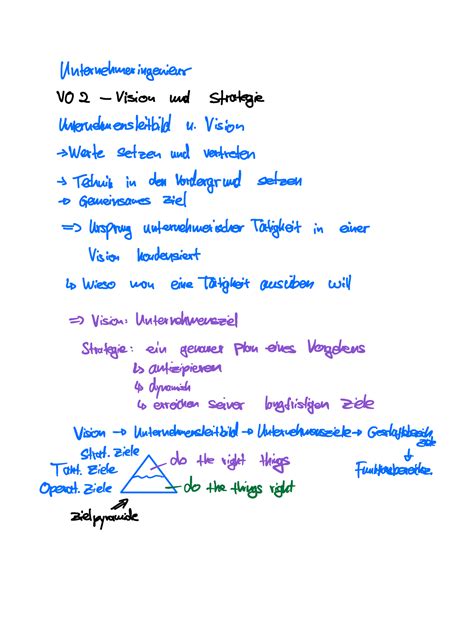 Unternehmeringenieur
VO 2 – Vision und Strategie
Unternehmensleitbild u. Vision
→ Werte setzen und vertreten
→ Technik in den Vordergrund setzen
→ Gemeinsames Ziel
⇒ Ursprung unternehmerischer Tätigkeit in einer
Vision kondensiert
↳ Wieso man eine Tätigkeit ausüben will
⇒ Vision: Unternehmensziel
Strategie: ein genauer Plan eines Vorgehens
↳ antizipieren
↳ dynamisch
↳ erreichen seiner langfristigen Ziele
Vision → Unternehmensleitbild → Unternehmensziele → Geschäftsbereich
ziele
↓
Funktionsbereiche
Strat. Ziele
Takt. Ziele
Operat. Ziele
do the right things
do the things right
Zielpyramide